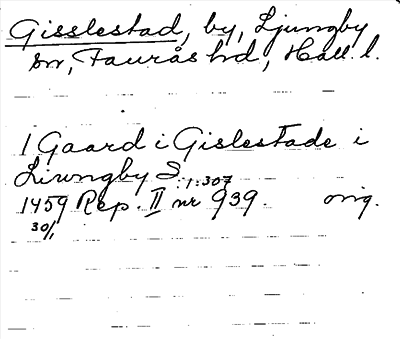 Gisslestad, by, Ljungby
sn, Faurås hd, Hall. l.
1 Gaard i Gislestade i
Liwngby S. :1:307
1459 Rep. II nr 939. orig.
30/1